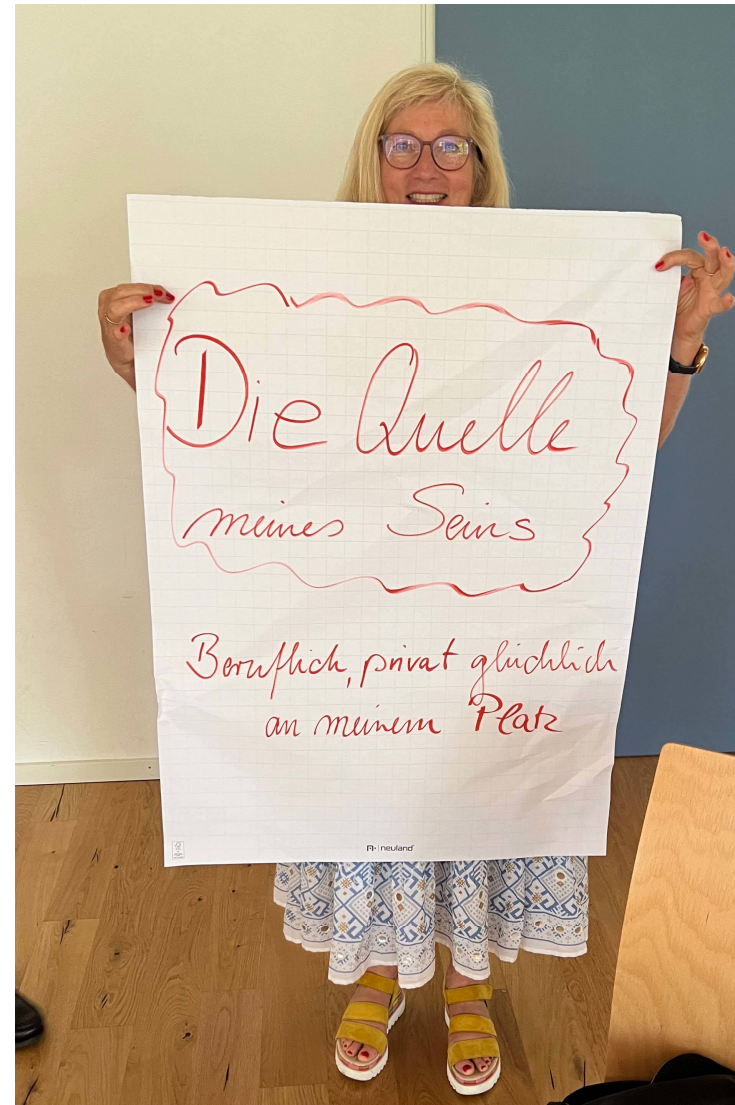 Die Quelle
meines Seins
Beruflich, privat glücklich
an meinem Platz
neuland